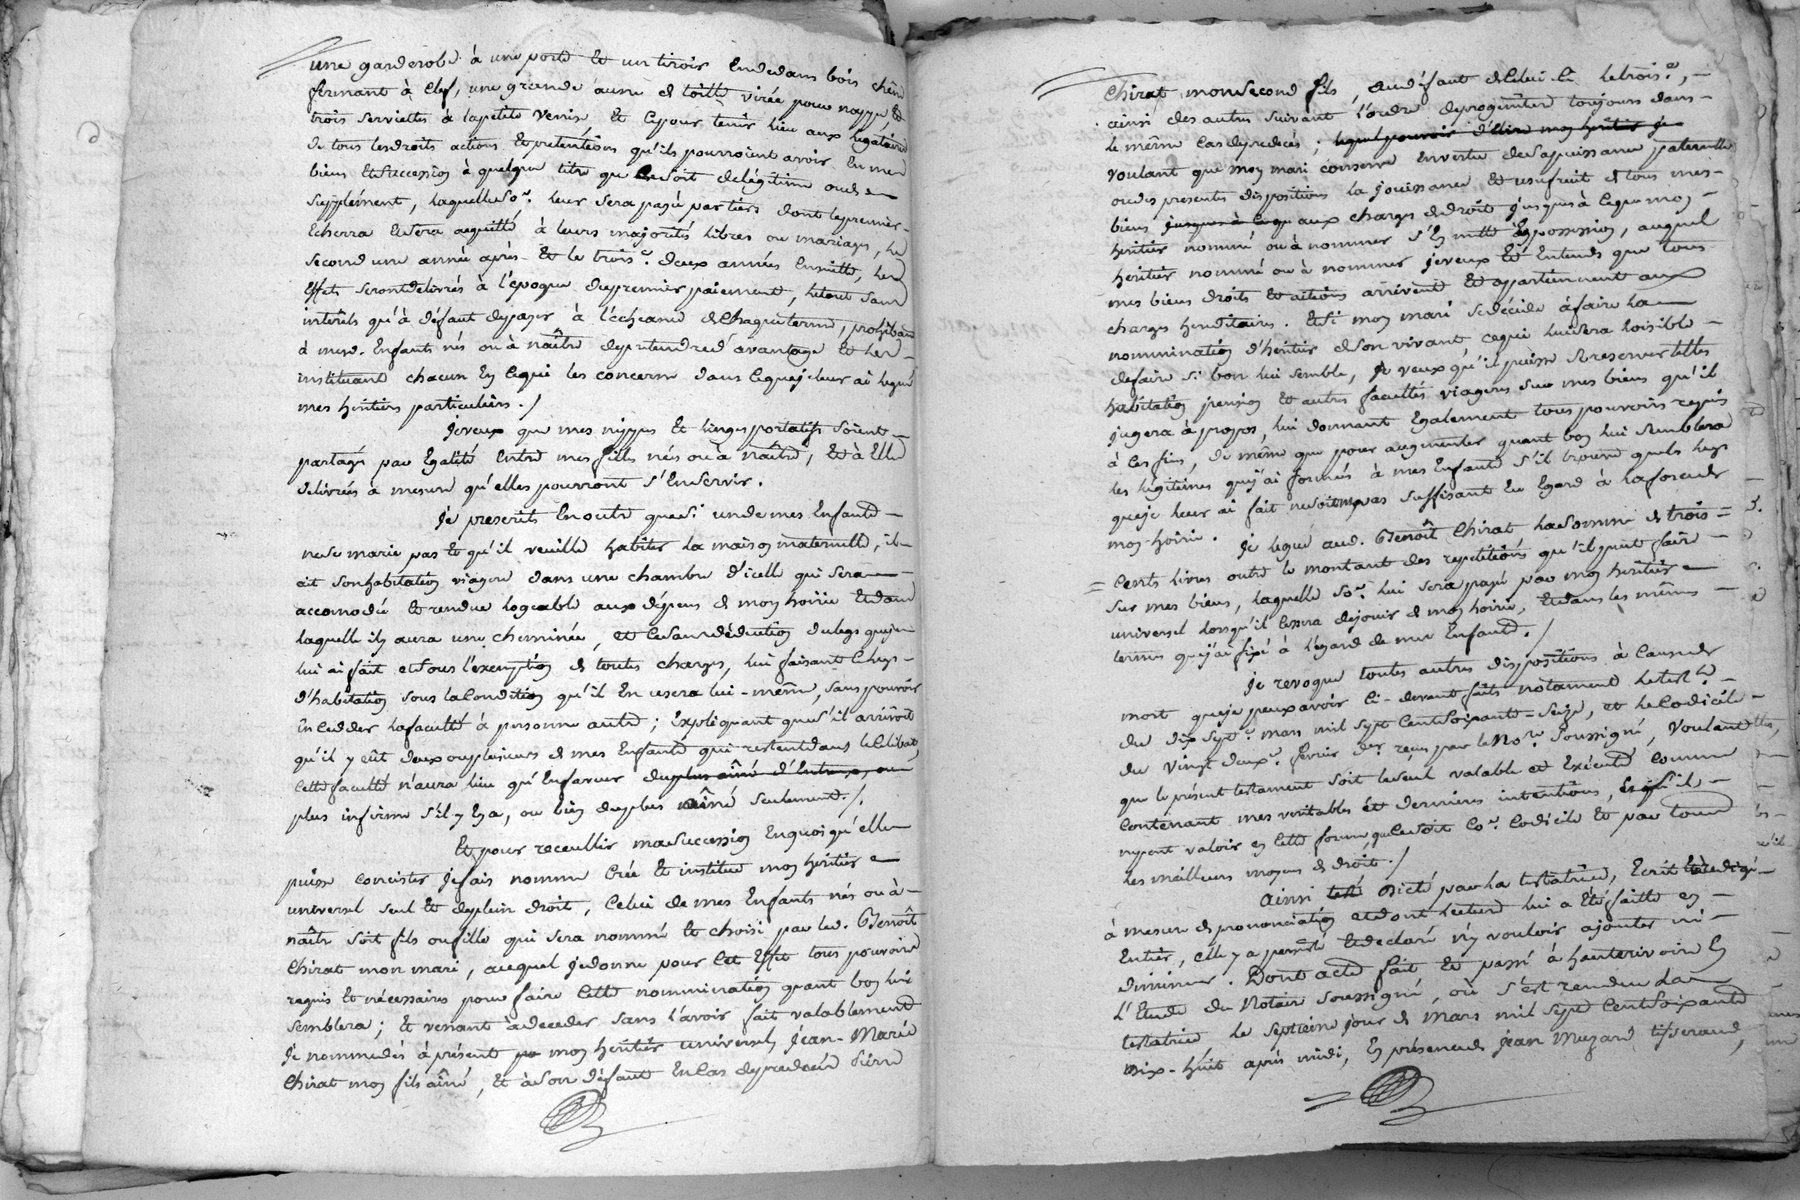 une garderobe à une porte et un tiroir Endedans bois chên
fermant à clef, une grande aune de toille virée pour nappe, et
trois serviettes à la petite Venise et ce pour tenir lieu aux légataires
de tous les droits actions et prétentions qu'ils pourroient avoir En mes
biens et succession à quelque titre que ce soit de légitime ou de
supplément, laquelle So.e leur sera payé par tiers dont le premier
Echerra et sera acquitté à leurs majorités libres ou mariage, le
second une année après et le trois.e deux années Ensuitte, les
effets seront délivrés à l'époque du premier paiement, le tout sans
intérêts qu'à défaut de payer à l'échéance de chaque terme, prohibant
à mesd. Enfants nés ou à naître de prétendre d'avantage et les
instituant chacun En ce qui les concerne dans ce que je leur ai légué
mes héritiers particuliers./
Je veux que mes nippes et linges portatifs soient
partagés par Egalité Entre mes filles nés ou à naître, et à Elle
délivrées à mesure qu'elles pourront s'En servir.
Je prescrits En outre que si un de mes Enfants
ne se marie pas et qu'il veuille habiter la maison maternelle, il
ait son habitation viagère dans une chambre d'icelle qui sera
accomodée et rendue logeable aux dépens de mon hoirie et dans
laquelle il y aura une cheminée, et ce sans déduction du legs que je
lui ai fait et sous l'exemption de toutes charges, lui faisant ce legs
d'habitation sous la condition qu'il En usera lui-même, sans pouvoir
En céder la faculté à personne autre; Expliquant que s'il arrivoit
qu'il y eût deux ou plusieurs de mes Enfants qui restent dans le Célibat,
cette faculté n'aura lieu qu'En faveur du plus aîné d'Entreux, ou
plus infirme s'il y En a, ou bien du plus aîné seulement./.
Et pour recueillir ma succession En quoi qu'elle
puisse concister je fais nomme Crée et institue mon héritier
universel seul et de plein droit, Celui de mes Enfants nés ou à
naître soit fils ou fille qui sera nommé et choisi par led. Benoît
Chirat mon mari, auquel je donne pour cet Effet tous pouvoirs
requis et nécessaires pour faire cette nommination quant bon lui
semblera; et venant à décéder sans l'avoir fait valablement
Je nomme dès à présent mon héritier universel, Jean-Marie
Chirat mon fils aîné, et à son défaut En cas de prédécès Pierre
Chirat mon second fils, au défaut de celui-là le trois.e,
ainsi des autres suivant l'ordre de progéniture toujours dans
le même cas de prédécès; lequel pouvoir d'Elire mon héritier je
voulant que mon mari conserve En vertu de sa puissance paternelle
ou des présentes dispositions la jouissance et usufruit de tous mes
biens jusques à ce que aux charges de droit jusques à ce que mon
héritier nommé ou à nommer s'En mette En possession, auquel
héritier nommé ou à nommer je veux et Entends que tous
mes biens droits et actions arrivent et appartiennent aux
charges héréditaires. Et si mon mari se décide à faire la
nommination d'héritier de son vivant ce qui lui sera loisible
de faire si bon lui semble, je veux qu'il puisse se réserver telles
habitation pension et autres facultés viagères sur mes biens qu'il
jugera à propos, lui donnant Egalement tous pouvoirs requis
à ces fins, de même que pour augmenter quant bon lui semblera
les légitimes que j'ai formés à mes Enfants s'il trouve que les legs
que je leur ai fait ne soient pas suffisant Eu Egard à la force de
mon hoirie. Je lègue aud. Benoît Chirat la Somme de trois
Cents livres outre le montant des répétitions qu'il peut faire
sur mes biens, laquelle So.e lui sera payé par mon héritier
universel lorsqu'il cessera de jouir de mon hoirie, et dans les mêmes
termes que j'ai fixé à l'égard de mes Enfants./
Je révoque toutes autres dispositions à cause de
mort que je peux avoir ci-devant faits notament le test.t
du dix sept.e mars mil sept Cent Soixante-Seize, et le Codicile
du vingt deux.e février der. reçus par le No.re Soussigné, voulant
que le présent testament soit le seul valable et Exécuté comme
Contenant mes véritables et dernières intentions, Et s'il
ne peut valoir en cette forme, que ce soit Co.e Codicile et par tous
les meilleurs moyens de droit./
Ainsi testé Dicté par la testatrice, Ecrit et rédigé
à mesure de prononciation et dont lecture lui a été faitte en
Entier, elle y a persisté et déclaré n'y vouloir ajouter ni
diminuer. Dont acte fait et passé à hauterivoire En
l'Etude du Notaire soussigné, où s'est rendue la
testatrice, le septième jour de Mars mil sept Cent Soixante
Dix-huit après midi, En présence de Jean Muzard tisserand,